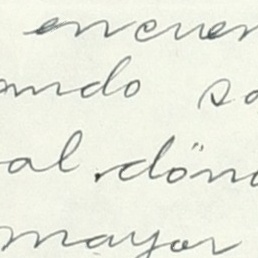 encuen
ando sa
al. döna
mayor